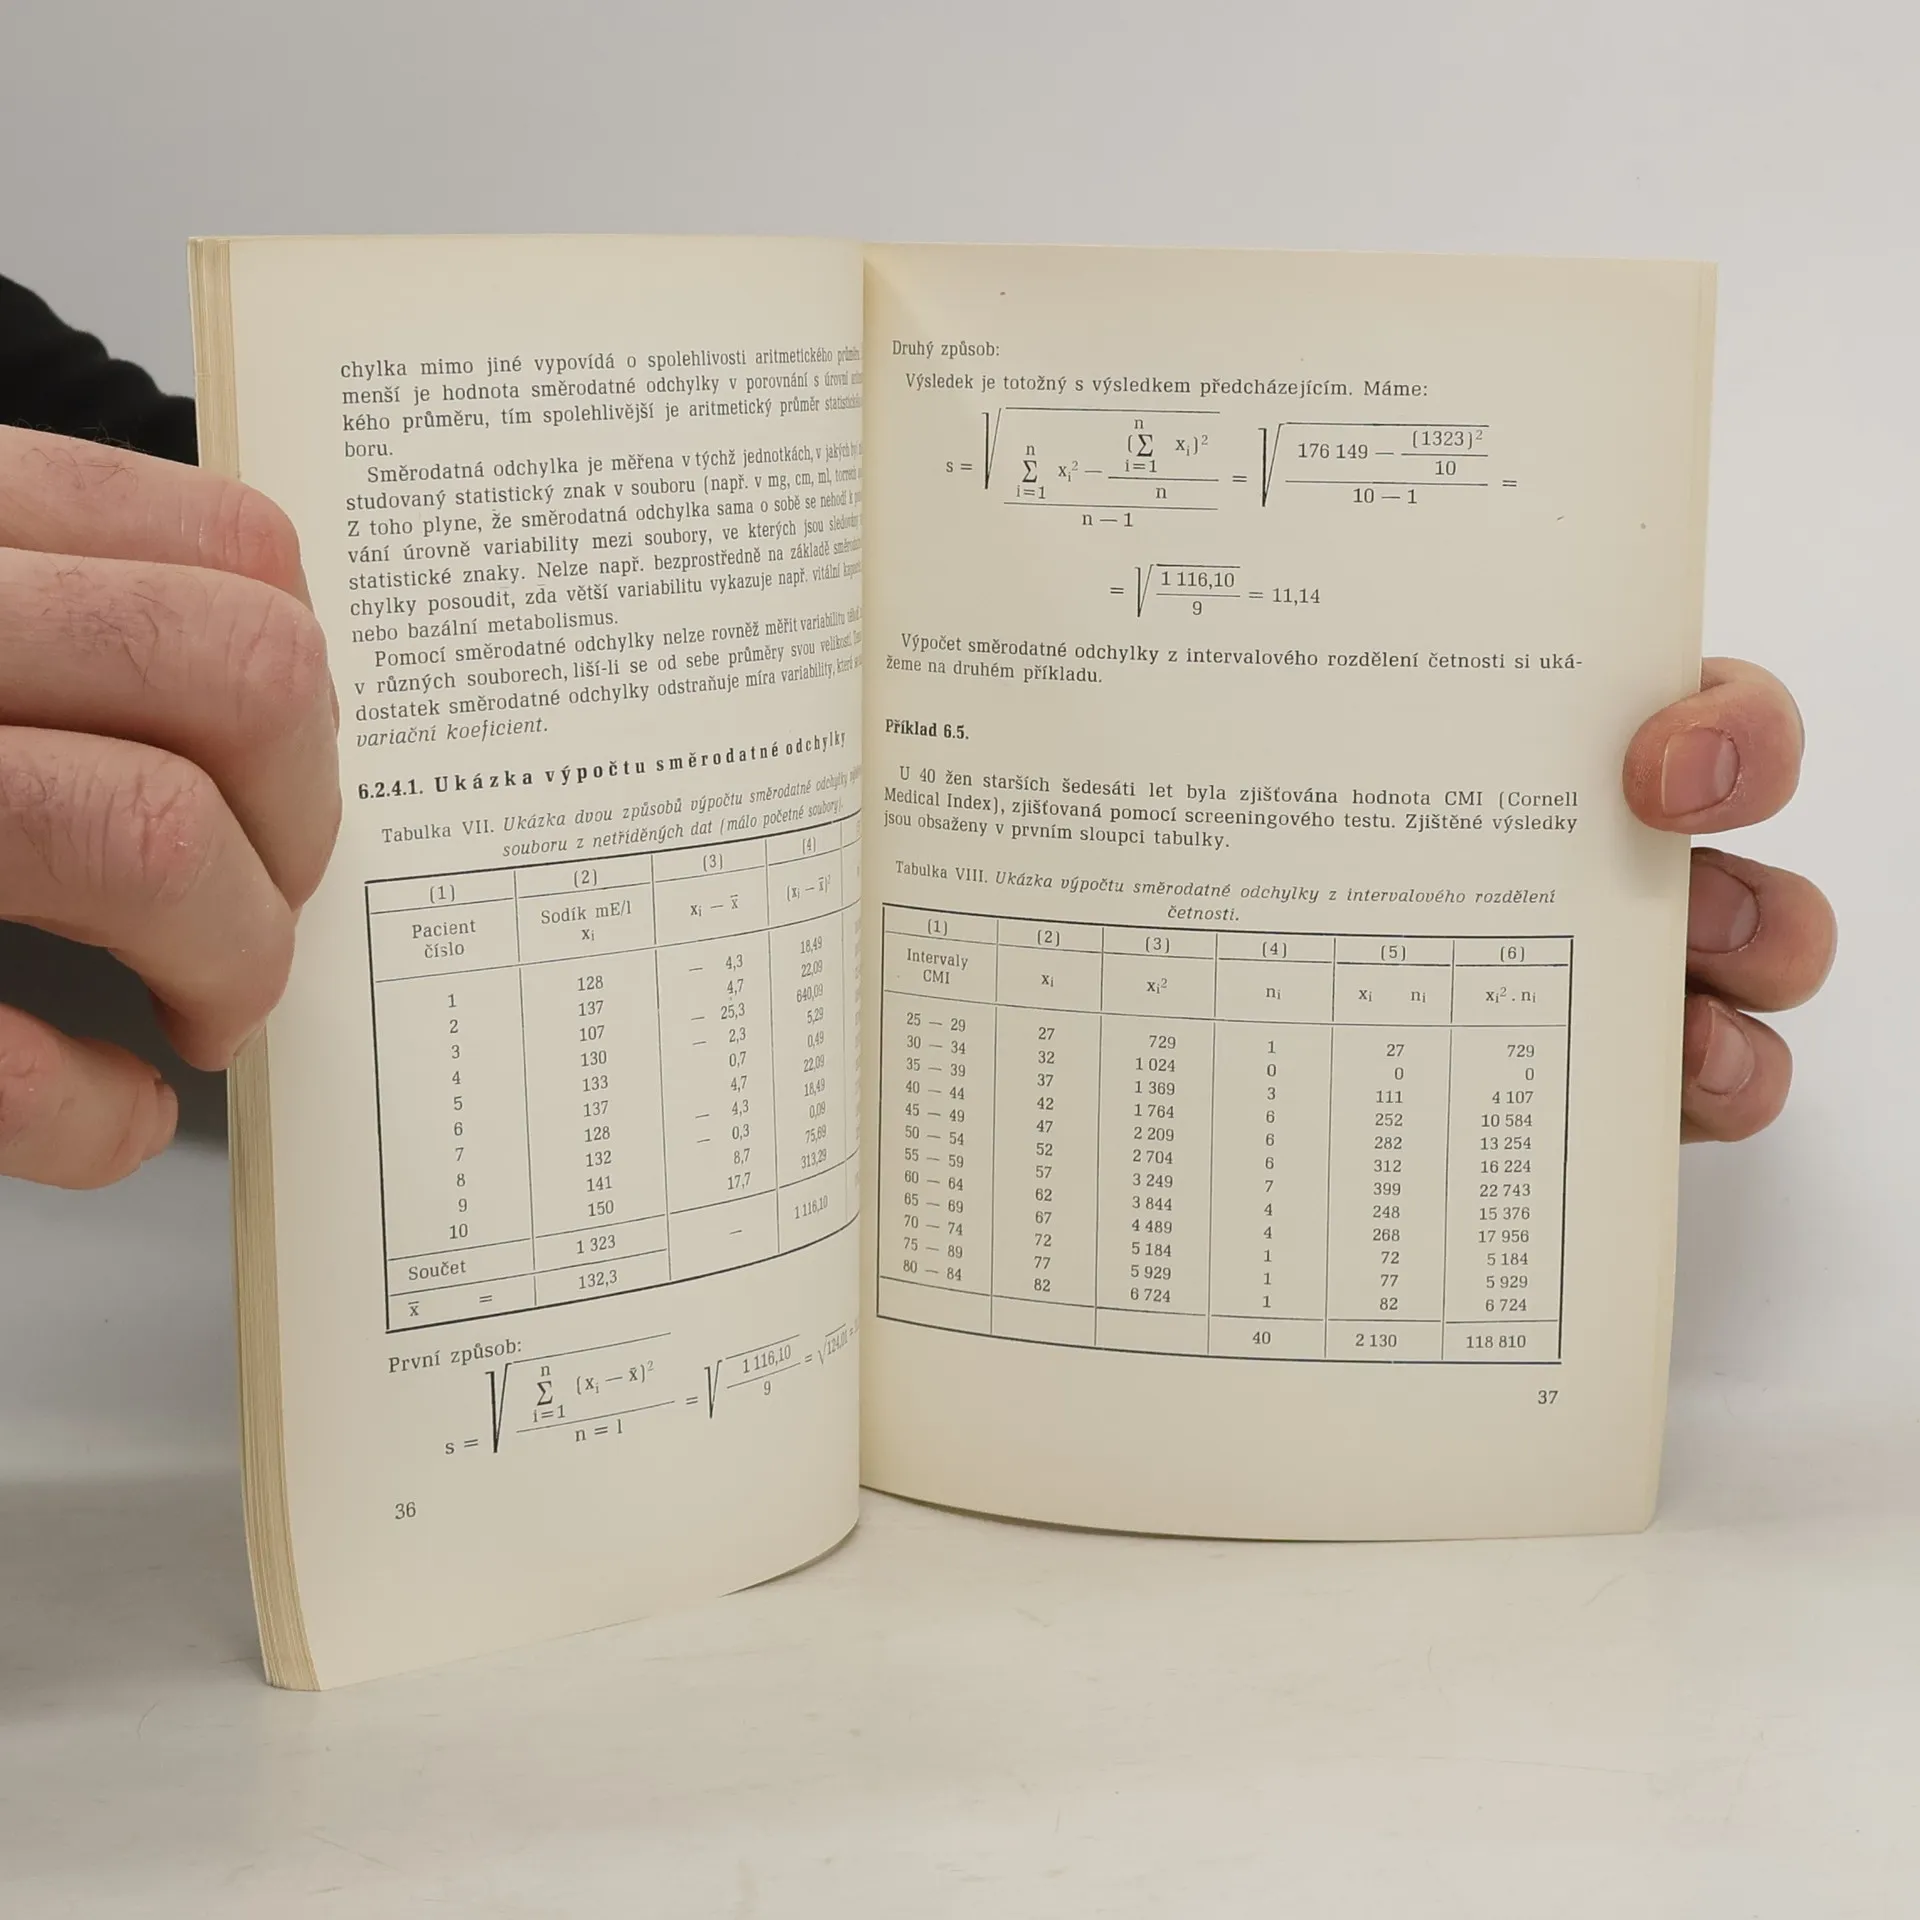 chylka mimo jiné vypovídá o spolehlivosti aritmetického
menší je hodnota směrodatné odchylky v porovnání s úrovní
kého průměru, tím spolehlivější je aritmetický průměr
boru.
Směrodatná odchylka je měřena v týchž jednotkách, v jakých
studovaný statistický znak v souboru (např. v mg, cm, ml,
Z toho plyne, že směrodatná odchylka sama o sobě se nehodí k
vání úrovně variability mezi soubory, ve kterých jsou
statistické znaky. Nelze např. bezprostředně na základě
chylky posoudit, zda větší variabilitu vykazuje např. vitální
nebo bazální metabolismus.
Pomocí směrodatné odchylky nelze rovněž měřit variabilitu
v různých souborech, liší-li se od sebe průměry svou velikostí.
dostatek směrodatné odchylky odstraňuje míra variability, která
variační koeficient.
6.2.4.1. Ukázka výpočtu směrodatné odchylky
Tabulka VII. Ukázka dvou způsobů výpočtu směrodatné odchylky
souboru z netříděných dat (málo početné soubory).
(1) (2) (3) (4)
Pacient číslo Sodík mE/l xᵢ xᵢ — x̄ (xᵢ — x̄)²
1 128 — 4,3 18,49
2 137 4,7 22,09
3 107 — 25,3 640,09
4 130 — 2,3 5,29
5 133 0,7 0,49
6 137 4,7 22,09
7 128 — 4,3 18,49
8 132 — 0,3 0,09
9 141 8,7 75,69
10 150 17,7 313,29
Součet 1 323 — 1 116,10
x̄ = 132,3
První způsob:
s = √ n ∑ i=1 (xᵢ — x̄)² / n = 1 = √ 1 116,10 / 9 = √124,01 =
36
Druhý způsob:
Výsledek je totožný s výsledkem předcházejícím. Máme:
s = √ n ∑ i=1 xᵢ² — n (∑ i=1 xᵢ)² / n / n — 1 = √ 176 149 — (1323)² / 10 / 10 — 1 =
= √ 1 116,10 / 9 = 11,14
Výpočet směrodatné odchylky z intervalového rozdělení četnosti si uká-
žeme na druhém příkladu.
Příklad 6.5.
U 40 žen starších šedesáti let byla zjišťována hodnota CMI (Cornell
Medical Index), zjišťovaná pomocí screeningového testu. Zjištěné výsledky
jsou obsaženy v prvním sloupci tabulky.
Tabulka VIII. Ukázka výpočtu směrodatné odchylky z intervalového rozdělení
četnosti.
(1) (2) (3) (4) (5) (6)
Intervaly CMI xᵢ xᵢ² nᵢ xᵢ nᵢ xᵢ² . nᵢ
25 — 29 27 729 1 27 729
30 — 34 32 1 024 0 0 0
35 — 39 37 1 369 3 111 4 107
40 — 44 42 1 764 6 252 10 584
45 — 49 47 2 209 6 282 13 254
50 — 54 52 2 704 6 312 16 224
55 — 59 57 3 249 7 399 22 743
60 — 64 62 3 844 4 248 15 376
65 — 69 67 4 489 4 268 17 956
70 — 74 72 5 184 1 72 5 184
75 — 89 77 5 929 1 77 5 929
80 — 84 82 6 724 1 82 6 724
40 2 130 118 810
37